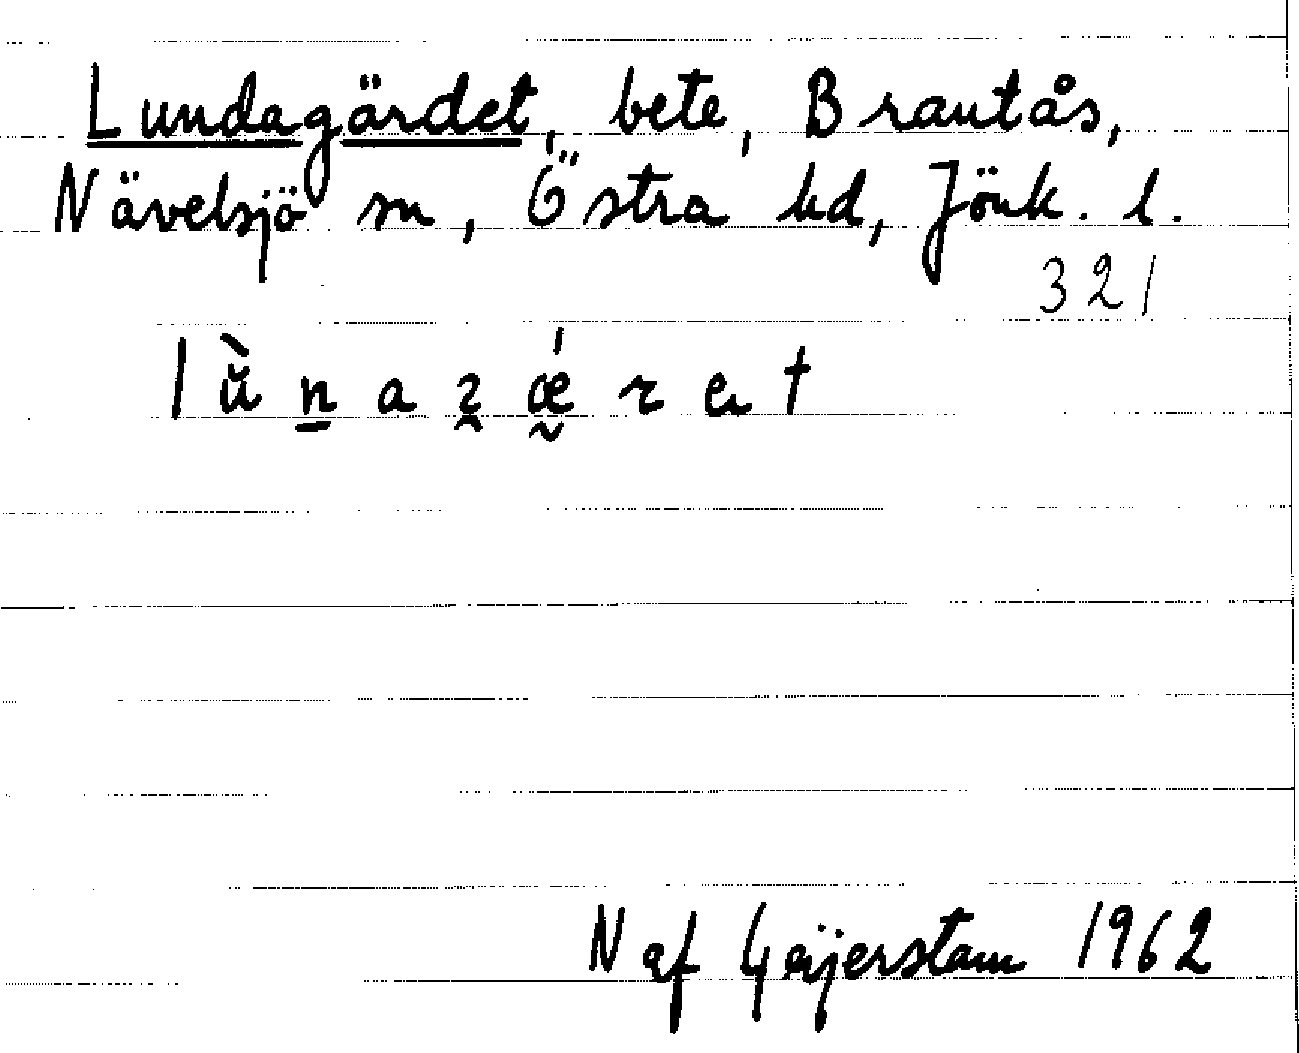 Lundagärdet, bete, Brantås,
Nävelsjö sn, Östra hd, Jönk. l.
321
N af Geijerstam 1962